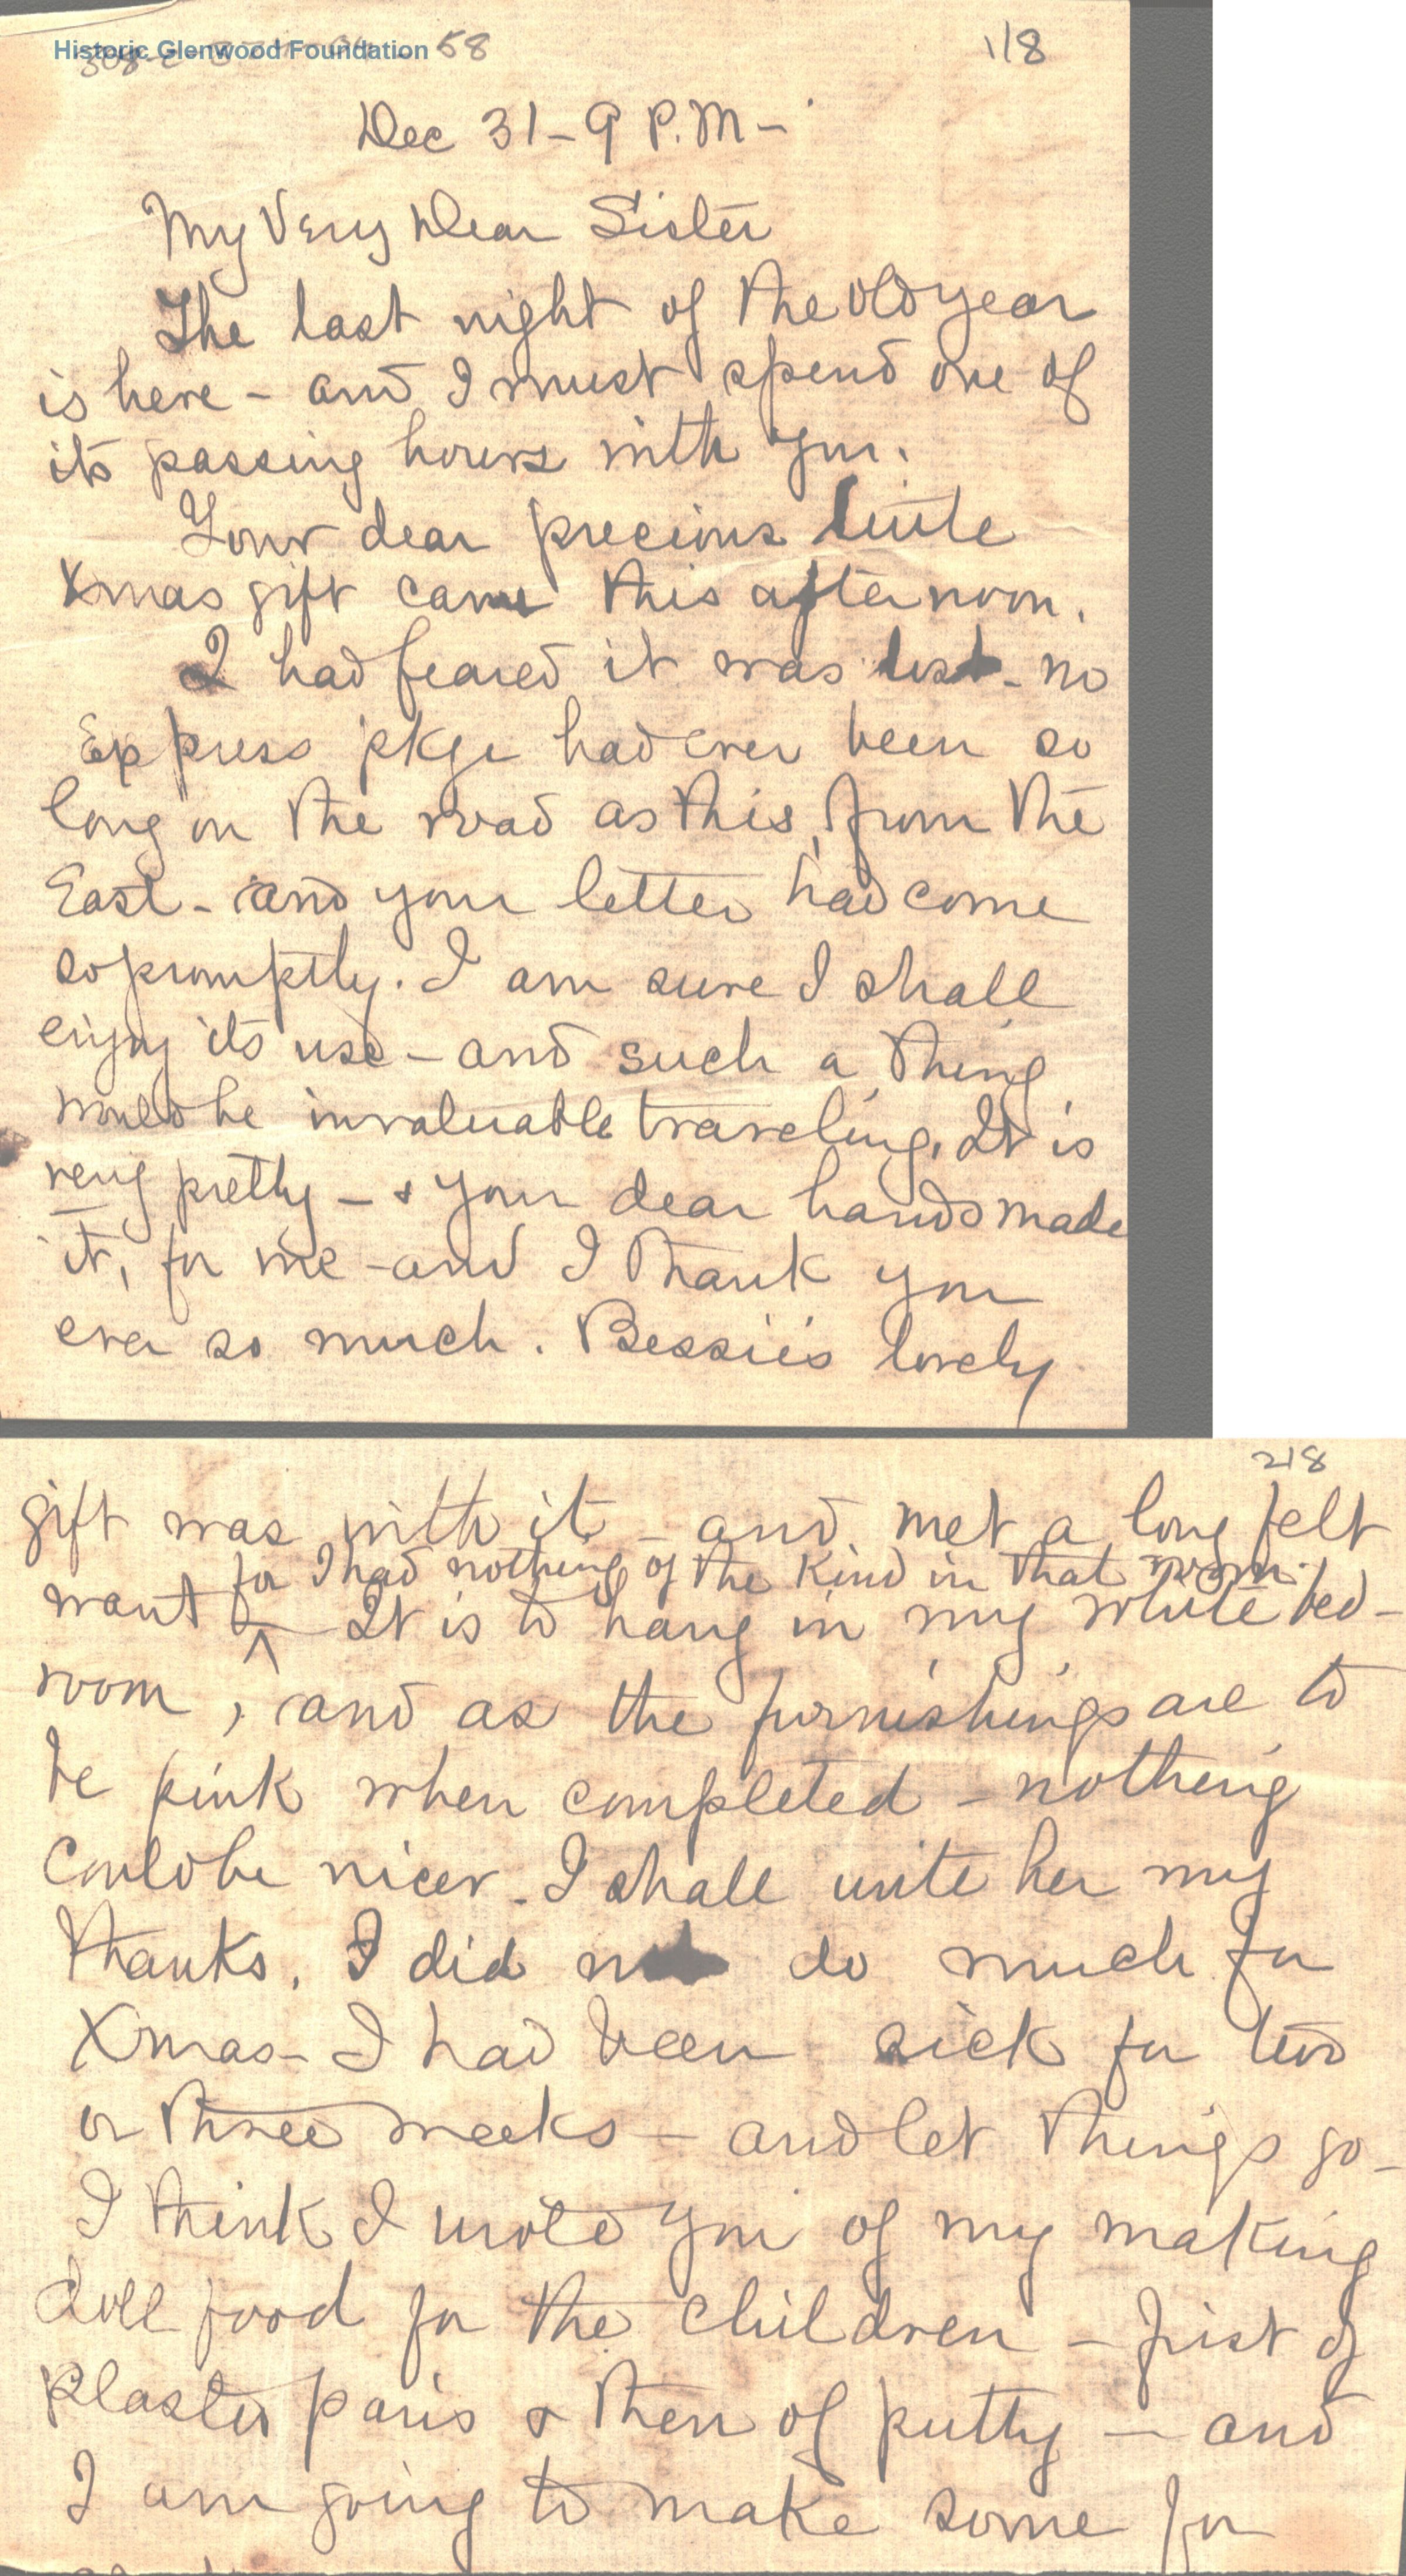 Historic Glenwood Foundation 58
1/8
Dec 31 - 9 P.M -
My Very Dear Sister
The last night of the old year
is here - and I must spend one of
its passing hours with you.
Your dear precious little
Xmas gift came this afternoon.
I had feared it was lost - no
Express pkge had ever been so
long on the road as this, from the
East - and your letter had come
so promptly. I am sure I shall
enjoy its use - and such a thing
would be invaluable traveling. It is
very pretty - & your dear hands made
it, for me - and I thank you
ever so much. Bessie's lovely
2/8
gift was with it - and met a long felt
for I had nothing of the kind in that room.
want It is to hang in my white bed-
room, and as the furnishings are to
be pink when completed - nothing
could be nicer - I shall write her my
thanks. I did not do much for
Xmas - I had been sick for two
or three weeks - and let things go -
I think I wrote you of my making
doll food for the children - first of
plaster paris & then of putty - and
I am going to make some for